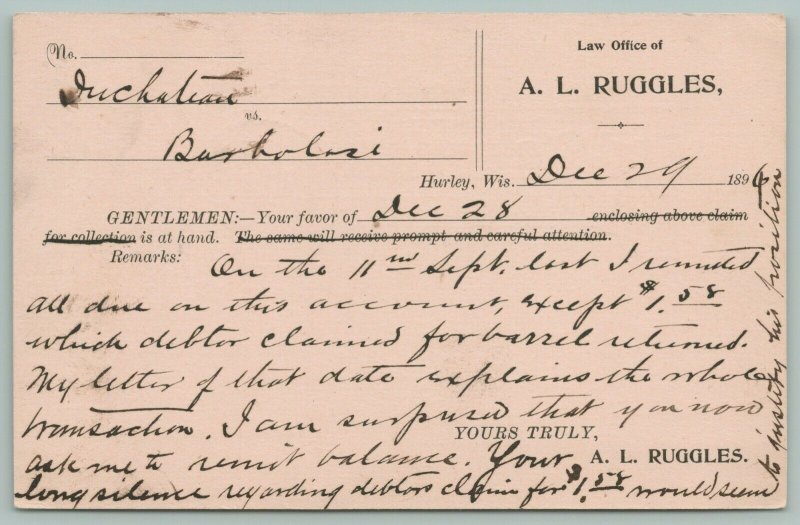 No.
Duchateau
vs.
Barbolasi
Law Office of
A. L. RUGGLES,
Hurley, Wis. Dec 29 1896
GENTLEMEN:—Your favor of Dec 28 enclosing above claim
for collection is at hand. The same will receive prompt and careful attention.
Remarks: On the 11th Sept. last I remitted
all due on this account, except $1.58
which debtor claimed for barrel returned.
My letter of that date explains the whole
transaction. I am surprised that you now
YOURS TRULY,
ask me to remit balance. Your
A. L. RUGGLES.
long silence regarding debtors claim for $1.58 would seem
to justify his position